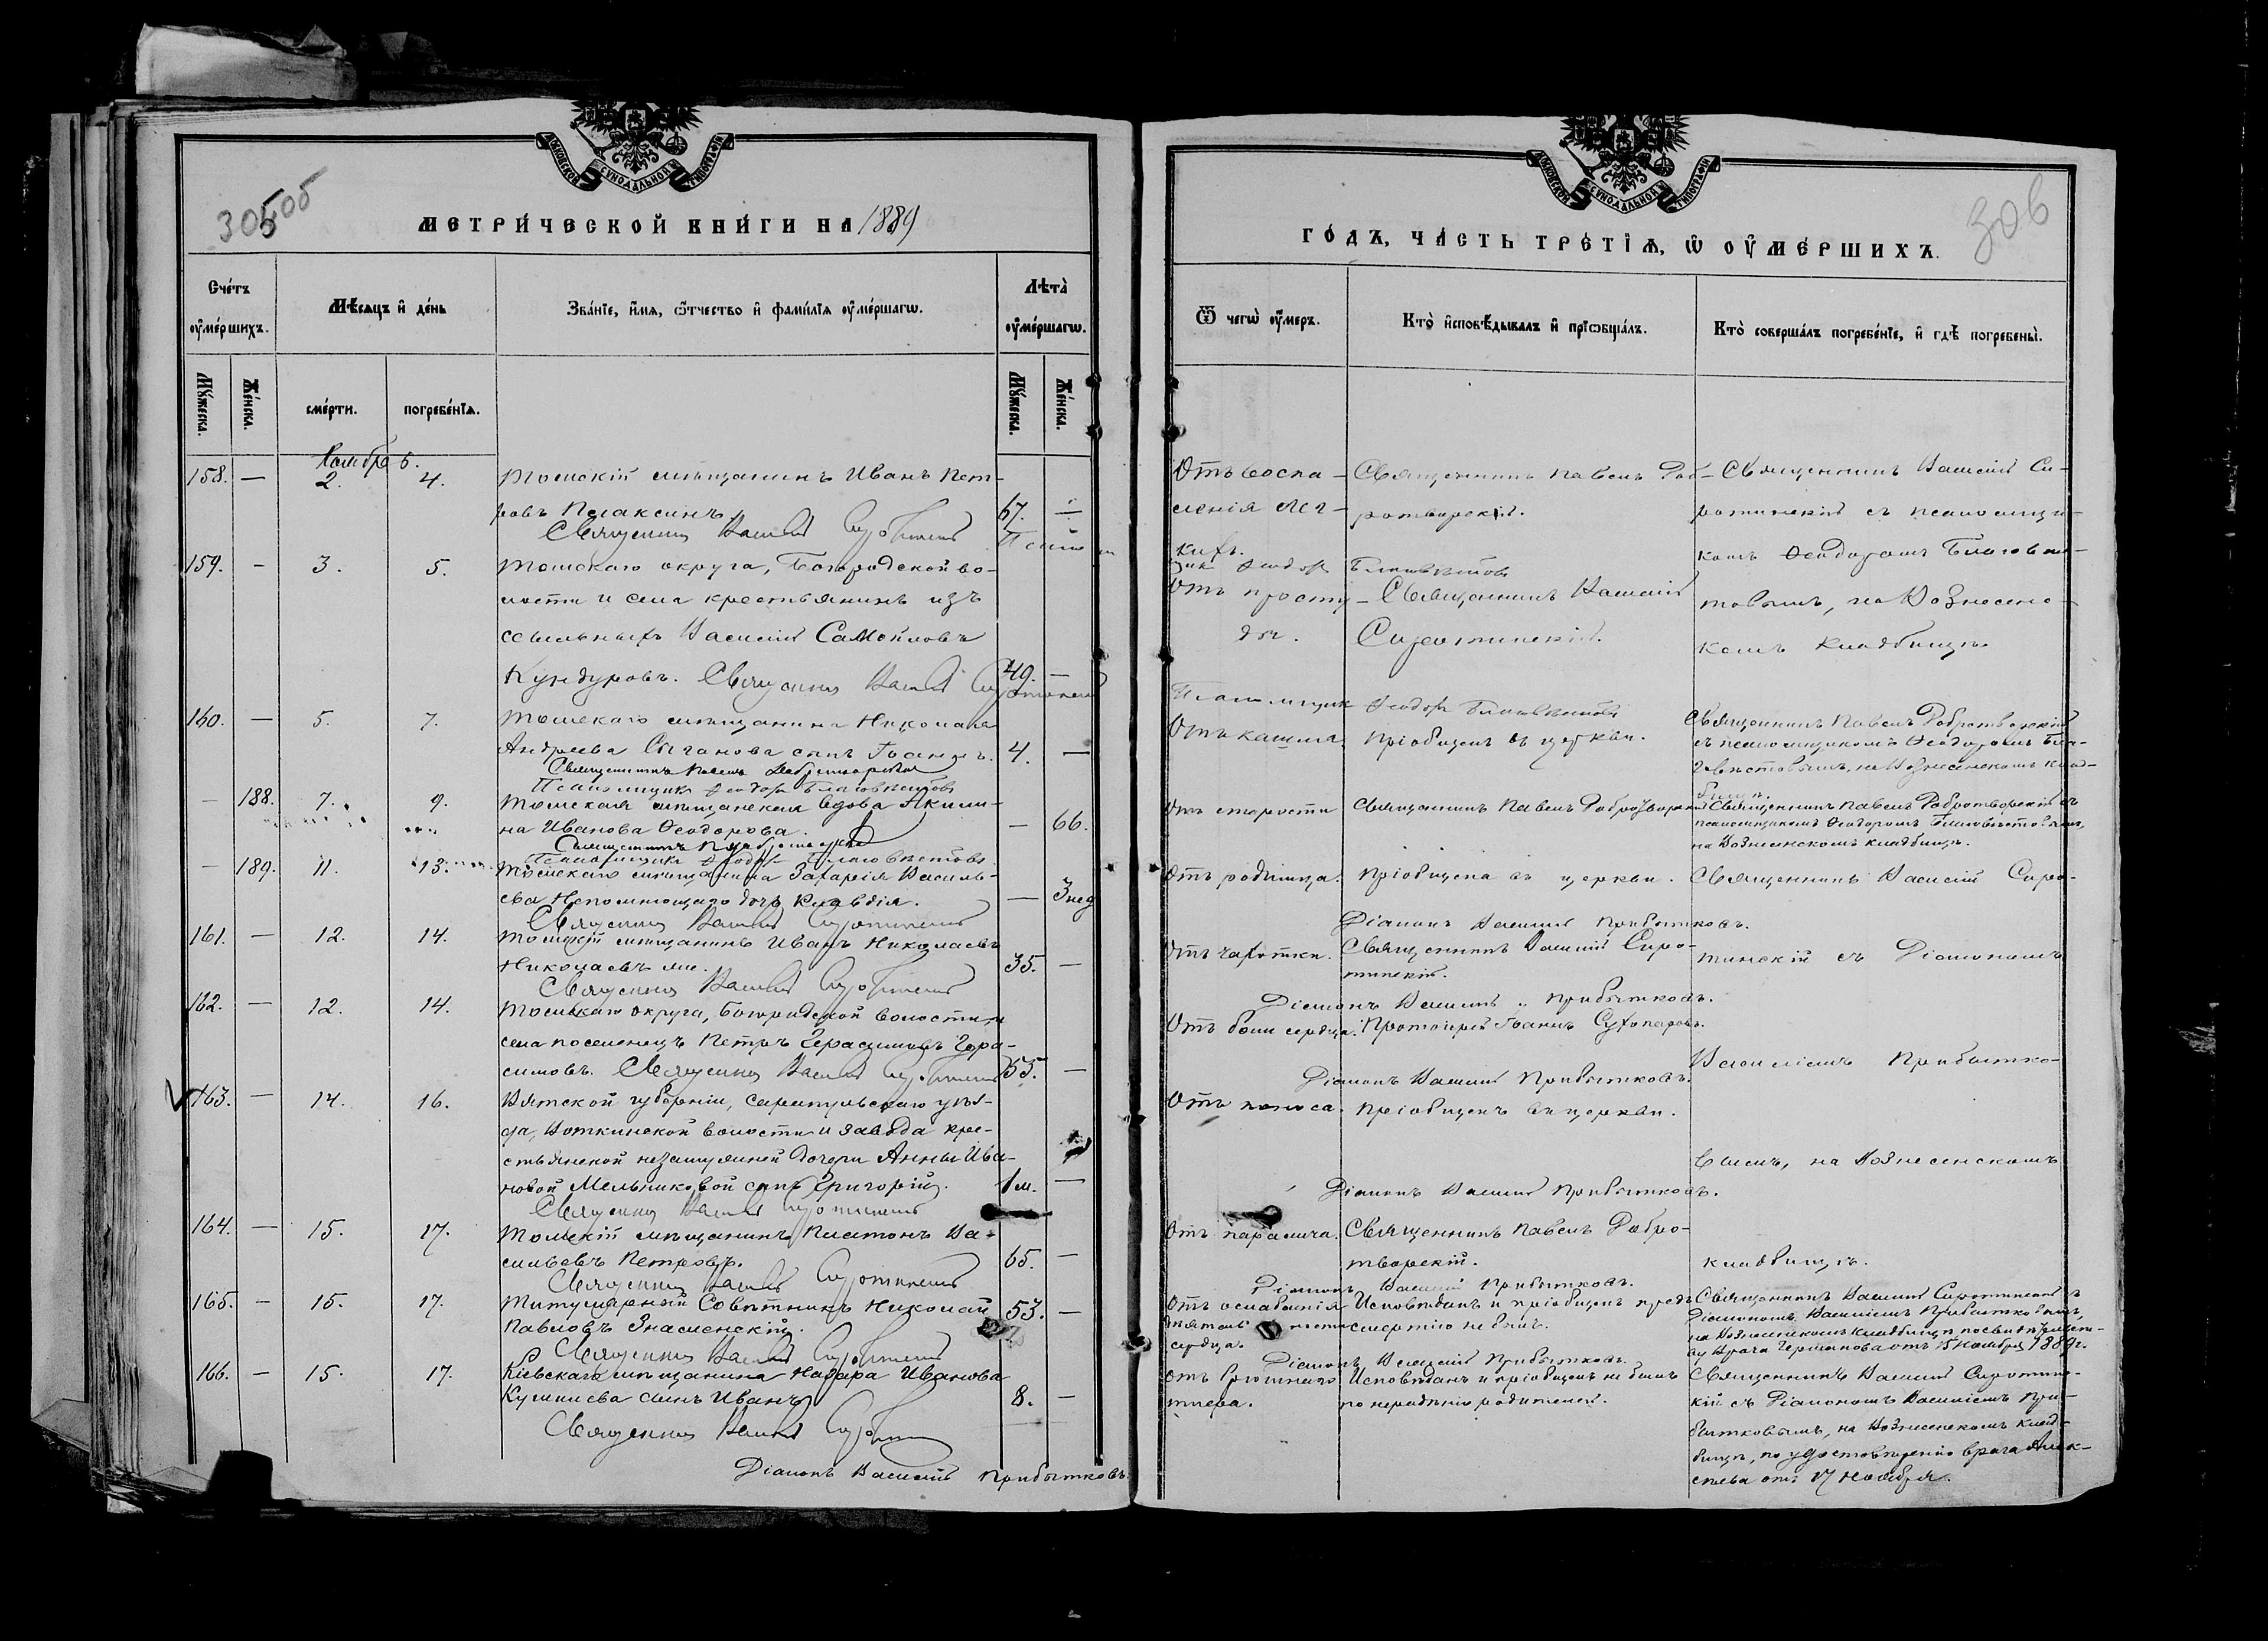 305 05
МОСКОВСКОЙ СѴНОДАЛЬНОЙ ТИПОГРАФІИ
МЕТРИ́ЧЕСКОЙ КНИ́ГИ НА 1889
Сче́тъ оу҆ме́ршихъ.
Мѣ́сяцъ и҆ де́нь
Зва́нїе, и҆́мя, ѻ҆́тчество и҆ фами́лїя оу҆ме́ршагѡ.
Лѣ́та оу҆ме́ршагѡ.
Мꙋ́жеска.
Же́нска.
сме́рти.
погребе́нїя.
Мꙋ́жеска.
Же́нска.
Ноябрь
158. — 2. 4. Томскій мѣщанинъ Иванъ Пет-
ровъ Плаксинъ 67. —
Священникъ Василій Сиротинскій
159. — 3. 5. Томскаго округа, Богородской во-
лости и села крестьянинъ изъ
ссыльныхъ Василій Самойловъ
Кундуровъ. 49. —
Священникъ Василій Сиротинскій
160. — 5. 7. Томскаго мѣщанина Николая
Андреева Сычанова сынъ Іоаннъ. 4. —
Священникъ Павелъ Добротворскій
Псаломщикъ Ѳеодоръ Благовѣстовъ
— 188. 7. 9. Томская мѣщанская вдова Акили-
на Иванова Ѳеодорова. — 66.
Священникъ П. Добротворскій
Псаломщикъ Ѳеодоръ Благовѣстовъ
— 189. 11. 13. Томскаго мѣщанина Захарія Василь-
ева Непомнющаго дочь Клавдія. — 3 нед
Священникъ Василій Сиротинскій
161. — 12. 14. Томскій мѣщанинъ Иванъ Николаевъ
Николаевъ же. 35. —
Священникъ Василій Сиротинскій
162. — 12. 14. Томскаго округа, Богородской волости и
села поселенецъ Петръ Герасимовъ Гера-
симовъ. 55. —
Священникъ Василій Сиротинскій
163. — 14. 16. Вятской губерніи, Сарапульскаго уѣз-
да, Воткинской волости и завода крес-
тьянской незамужней дочери Анны Ива-
новой Мельниковой сынъ Григорій. 1 м. —
Священникъ Василій Сиротинскій
164. — 15. 17. Томскій мѣщанинъ Платонъ Ва-
сильевъ Петровъ. 65. —
Священникъ Василій Сиротинскій
165. — 15. 17. Титулярный Совѣтникъ Николай 53. —
Павловъ Знаменскій.
Священникъ Василій Сиротинскій
166. — 15. 17. Кіевскаго мѣщанина Назара Иванова
сынъ Иванъ 8. —
Священникъ Василій Сиротинскій
Діаконъ Василій Прибытковъ.
306
МОСКОВСКОЙ СѴНОДАЛЬНОЙ ТИПОГРАФІИ
ГО́ДЪ, ЧА́СТЬ ТРЕ́ТІЯ, Ѡ҆ ОУ҆МЕ́РШИХЪ.
Ѿ чегѡ̀ оу҆́меръ.
Кто̀ и҆сповѣ́дывалъ и҆ прїѡбща́лъ.
Кто̀ соверша́лъ погребе́нїе, и҆ гдѣ̀ погребены̀.
Отъ воспа-
ленія лег-
кихъ.
Священникъ Павелъ Доб-
ротворскій.
Священникъ Василій Си-
ротинскій съ псаломщи-
комъ Ѳеодоромъ Благовѣс-
товымъ, на Вознесенс-
комъ кладбищѣ
Псаломщикъ Ѳеодоръ Благовѣстовъ
Отъ просту-
ды.
Священникъ Василій
Сиротинскій.
Псаломщикъ Ѳеодоръ Благовѣстовъ
Отъ кашля. Пріобщенъ въ церкви.
Священникъ Павелъ Добротворскій
съ псаломщикомъ Ѳеодоромъ Бла-
говѣстовымъ, на Вознесенскомъ клад-
бищѣ.
Отъ старости Священникъ Павелъ Добротворскій
Священникъ Павелъ Добротворскій съ
псаломщикомъ Ѳеодоромъ Благовѣстовымъ,
на Вознесенскомъ кладбищѣ.
Отъ родимца. Пріобщена въ церкви. Священникъ Василій Сиро-
Діаконъ Василій Прибытковъ.
Отъ чахотки. Священникъ Василій Сиро-
тинскій.
тинскій съ Діакономъ
Діаконъ Василій Прибытковъ.
Отъ боли сердца. Протоіерей Іоаннъ Сухопаровъ.
Василіемъ Прибытко-
Діаконъ Василій Прибытковъ.
Отъ поноса. Пріобщенъ въ церкви.
вымъ, на Вознесенскомъ
Діаконъ Василій Прибытковъ.
Отъ паралича. Священникъ Павелъ Добро-
творскій.
кладбищѣ.
Діаконъ Василій Прибытковъ.
Отъ ослабленія
сердца.
Исповѣданъ и пріобщенъ предъ
смертію не былъ.
Священникъ Василій Сиротинскій съ
Діакономъ Василіемъ Прибытковымъ,
на Вознесенскомъ кладбищѣ, по свидѣтельст-
ву врача Германова отъ 15 Ноября 1889 г.
Діаконъ Василій Прибытковъ.
Отъ брюшнаго
тифа.
Исповѣданъ и пріобщенъ не былъ
по нерадѣнію родителей.
Священникъ Василій Сиротинс-
кій съ Діакономъ Василіемъ При-
бытковымъ, на Вознесенскомъ клад-
бищѣ, по удостовѣренію врача Алек-
сѣева отъ 17 Ноября.